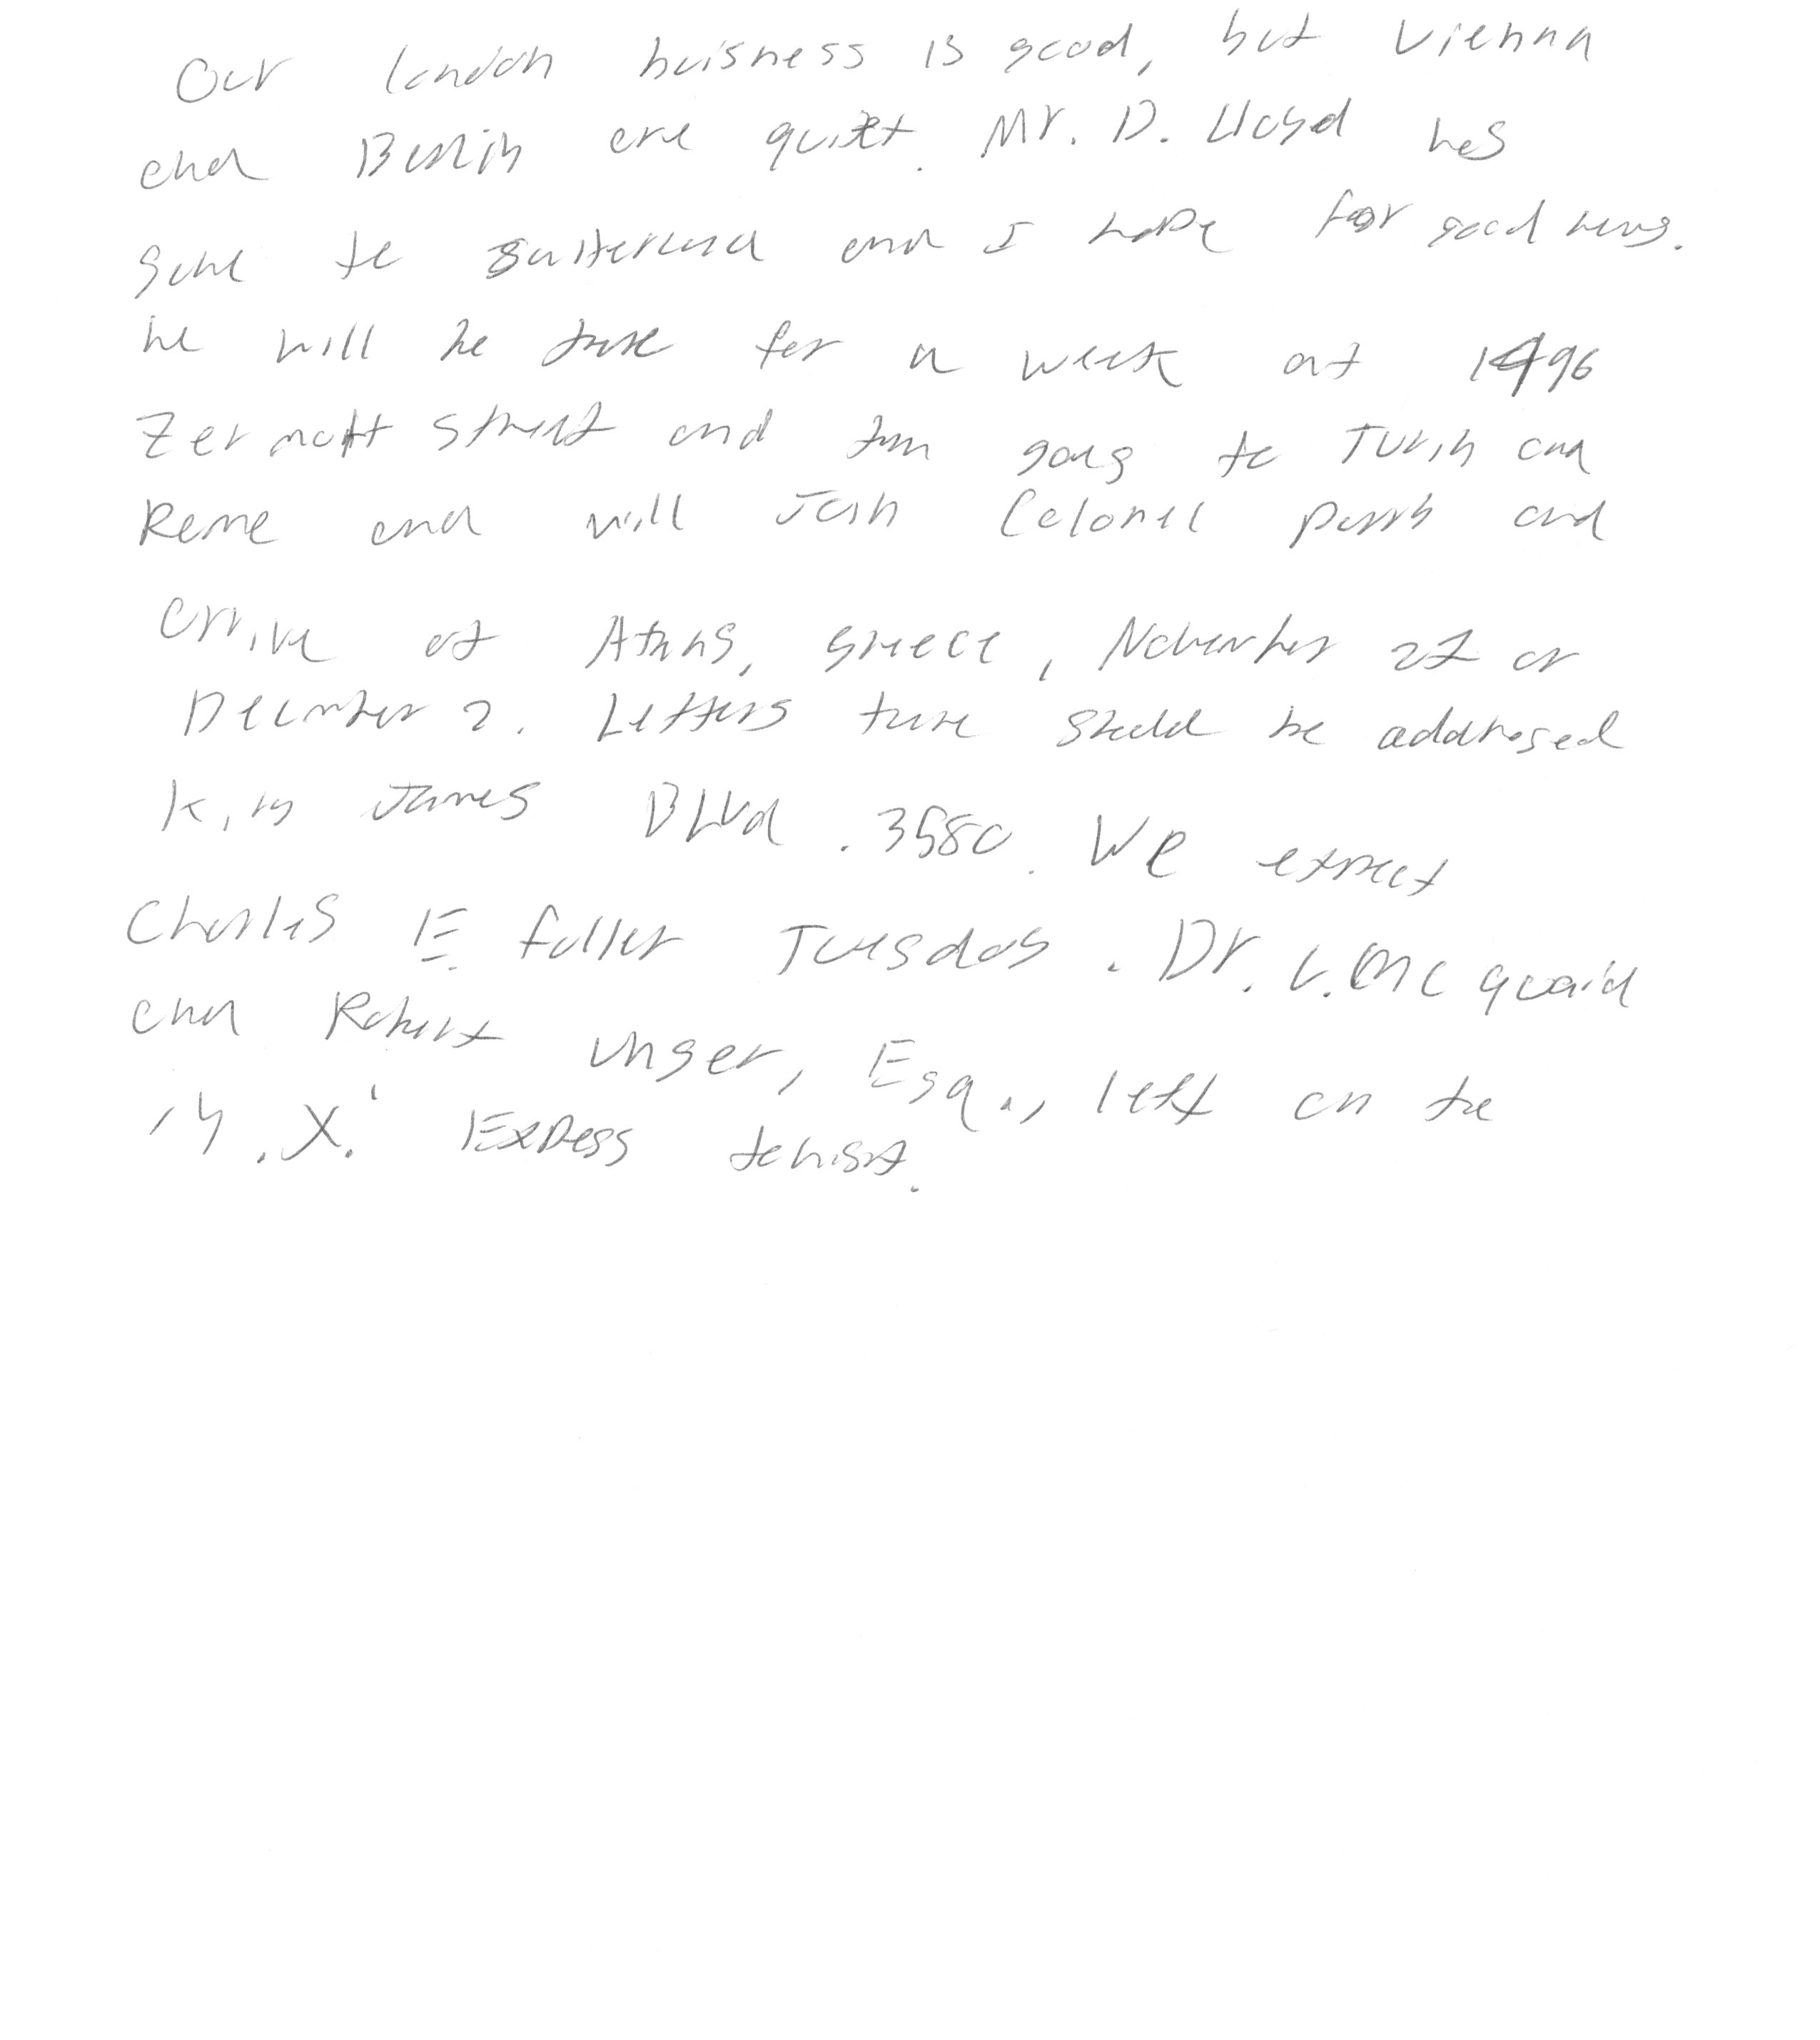 Our london buisness is good, but Vienna
and Berlin are quiet. Mr. D. Lloyd has
gone to switerland and I hope for good news.
he will be there for a week at 1496
Zermott street and then going to Turin and
Rome and will Join Colonel parry and
arrive at Athens, greece, November 27 or
December 2. Letters there should be addressed
King James BLVd. 3580. We expect
Charles E. fuller Tuesday. Dr. L. Mc quaid
and Robert unger, Esq., left on the
'Y.X.' Express tonight.